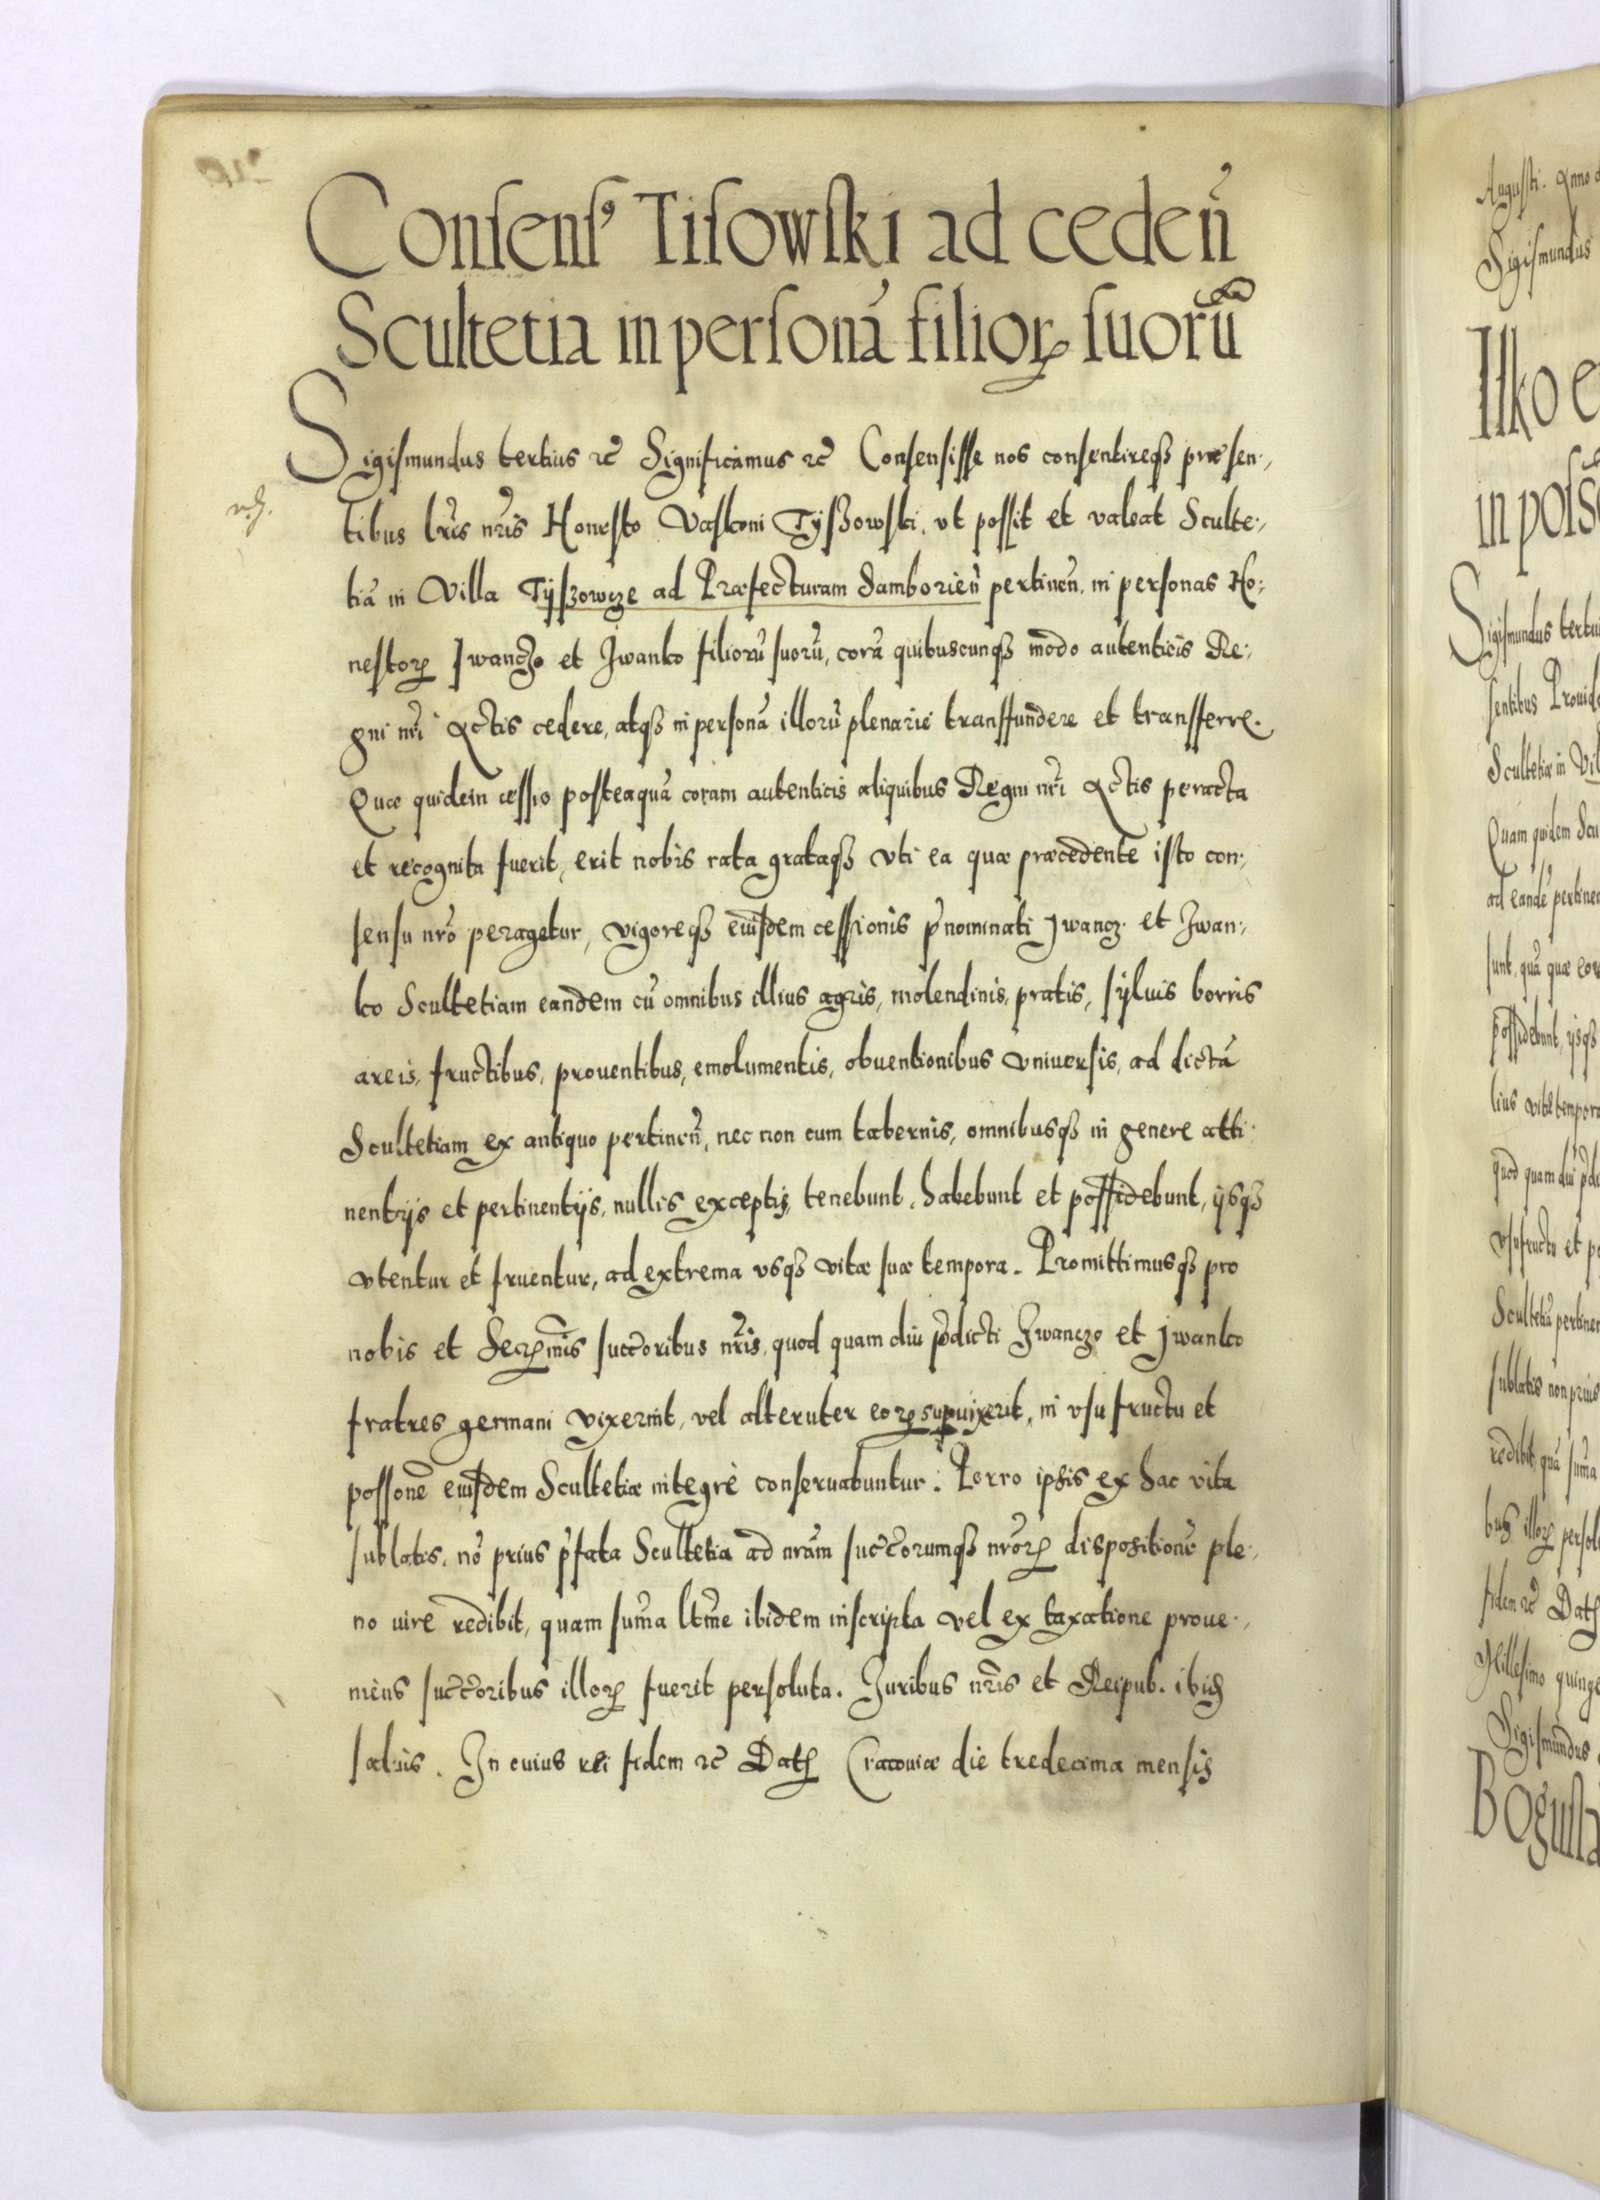 Consensꝰ Tisowski ad cedeñ
Scultetia in personā filioꝝ suorū
Sigismundus tertius ꝛc Significamus ꝛc Consensisse nos consentireqꝫ præsen:
tibus lr̃is nr̃is Honesto Vaskoni Tyszowski, vt possit et valeat Sculte:
tiā in Villa Tyszowcze ad Præfecturam Samborień pertineñ, in personas Ho:
nestoꝝ Iwanczo et Iwanko filiorū suorū, corā quibuscunqꝫ modo autenticis Re:
gni nr̃i Actis cedere, atqꝫ in personā illorū plenarie transfundere et transferre.
Quæ quidem cessio posteaquā coram autenticis aliquibus Regni nr̃i Actis peracta
et recognita fuerit, erit nobis rata grataqꝫ vti ea quæ præcedente isto con:
sensu nr̃o peragetur, vigoreqꝫ eiusdem cessionis p̃nominati Iwancz. et Iwan:
ko Scultetiam eandem cū omnibus illius agris, molendinis, pratis, syluis borris
areis, fructibus, prouentibus, emolumentis, obuentionibus vniuersis, ad dictā
Scultetiam ex antiquo pertineñ, nec non cum tabernis, omnibusqꝫ in genere atti:
nentijs et pertinentijs, nullis exceptis, tenebunt, habebunt et possidebunt, ijsqꝫ
vtentur et fruentur, ad extrema vsqꝫ vitæ suæ tempora. Promittimusqꝫ pro
nobis et Sereꝝmis succoribus nr̃is, quod quam diu p̃dicti Iwanczo et Iwanko
fratres germani vixerint, vel alteruter eoꝝ supuixerit, in vsu fructu et
possone eiusdem Scultetiæ integrè conseruabuntur. Porro ipsis ex hac vita
sublatis, nō prius p̃fata Scultetia ad nr̃am succorumqꝫ nr̃oꝝ dispositionē ple:
no iure redibit, quam suma ltme ibidem inscripta vel ex taxatione proue:
niens succoribus illoꝝ fuerit persoluta. Iuribus nr̃is et Reipub. ibid
saluis. In cuius rei fidem ꝛc Dat Cracouiæ die tredecima mensis
Augusti. Anno
Sigismundus
Ilko e
Sigismundus
sentibus
Scultetiæ in
Quam quidem Scu
sunt, quā quæ
possidebunt, ijsqꝫ
quod quam diu
vsufructu et
sublatis non prius
redibit, quā suma
fidem ꝛc Dat
Millesimo
Sigismundus